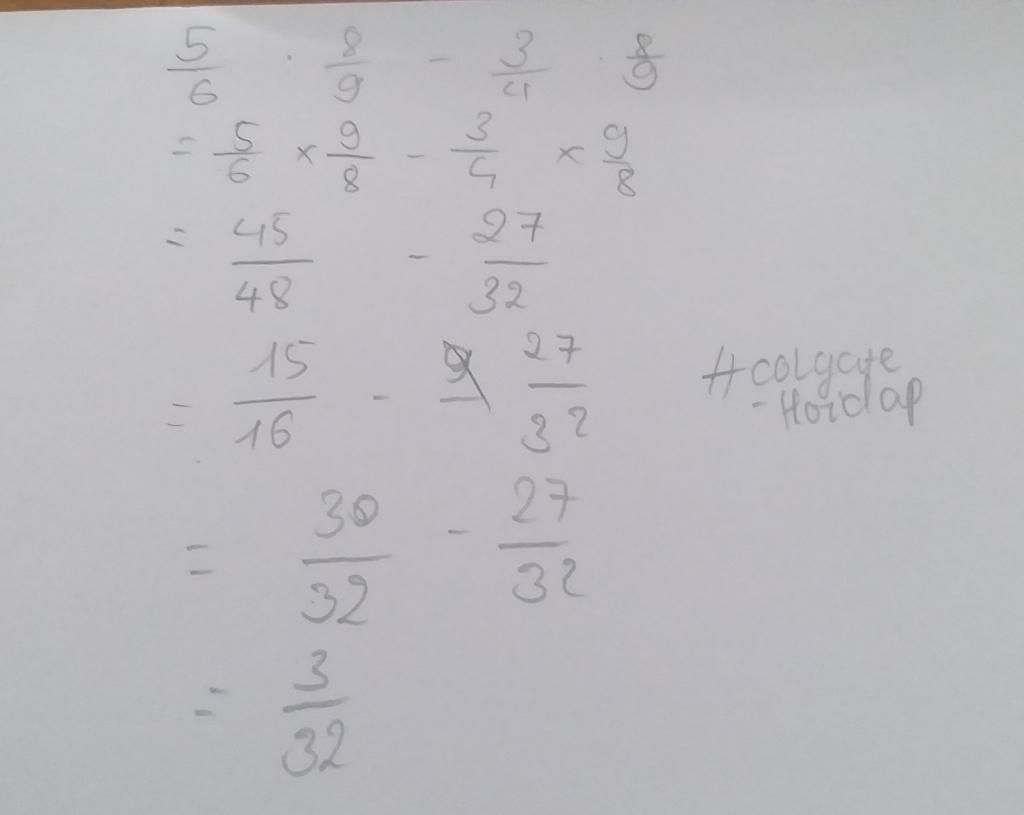 5/6 · 8/9 - 3/4 · 8/9
= 5/6 × 9/8 - 3/4 × 9/8
= 45/48 - 27/32
= 15/16 - 27/32
#colgate
-Hoidap
= 30/32 - 27/32
= 3/32